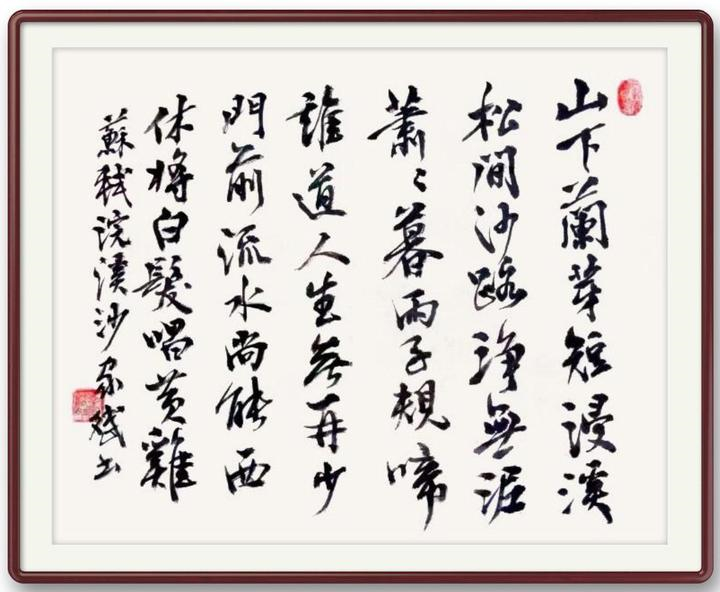 山下蘭芽短浸溪
松間沙路淨無泥
蕭々暮雨子規啼
誰道人生無再少
門前流水尚能西
休將白髮唱黃雞
蘇軾浣溪沙家斌书